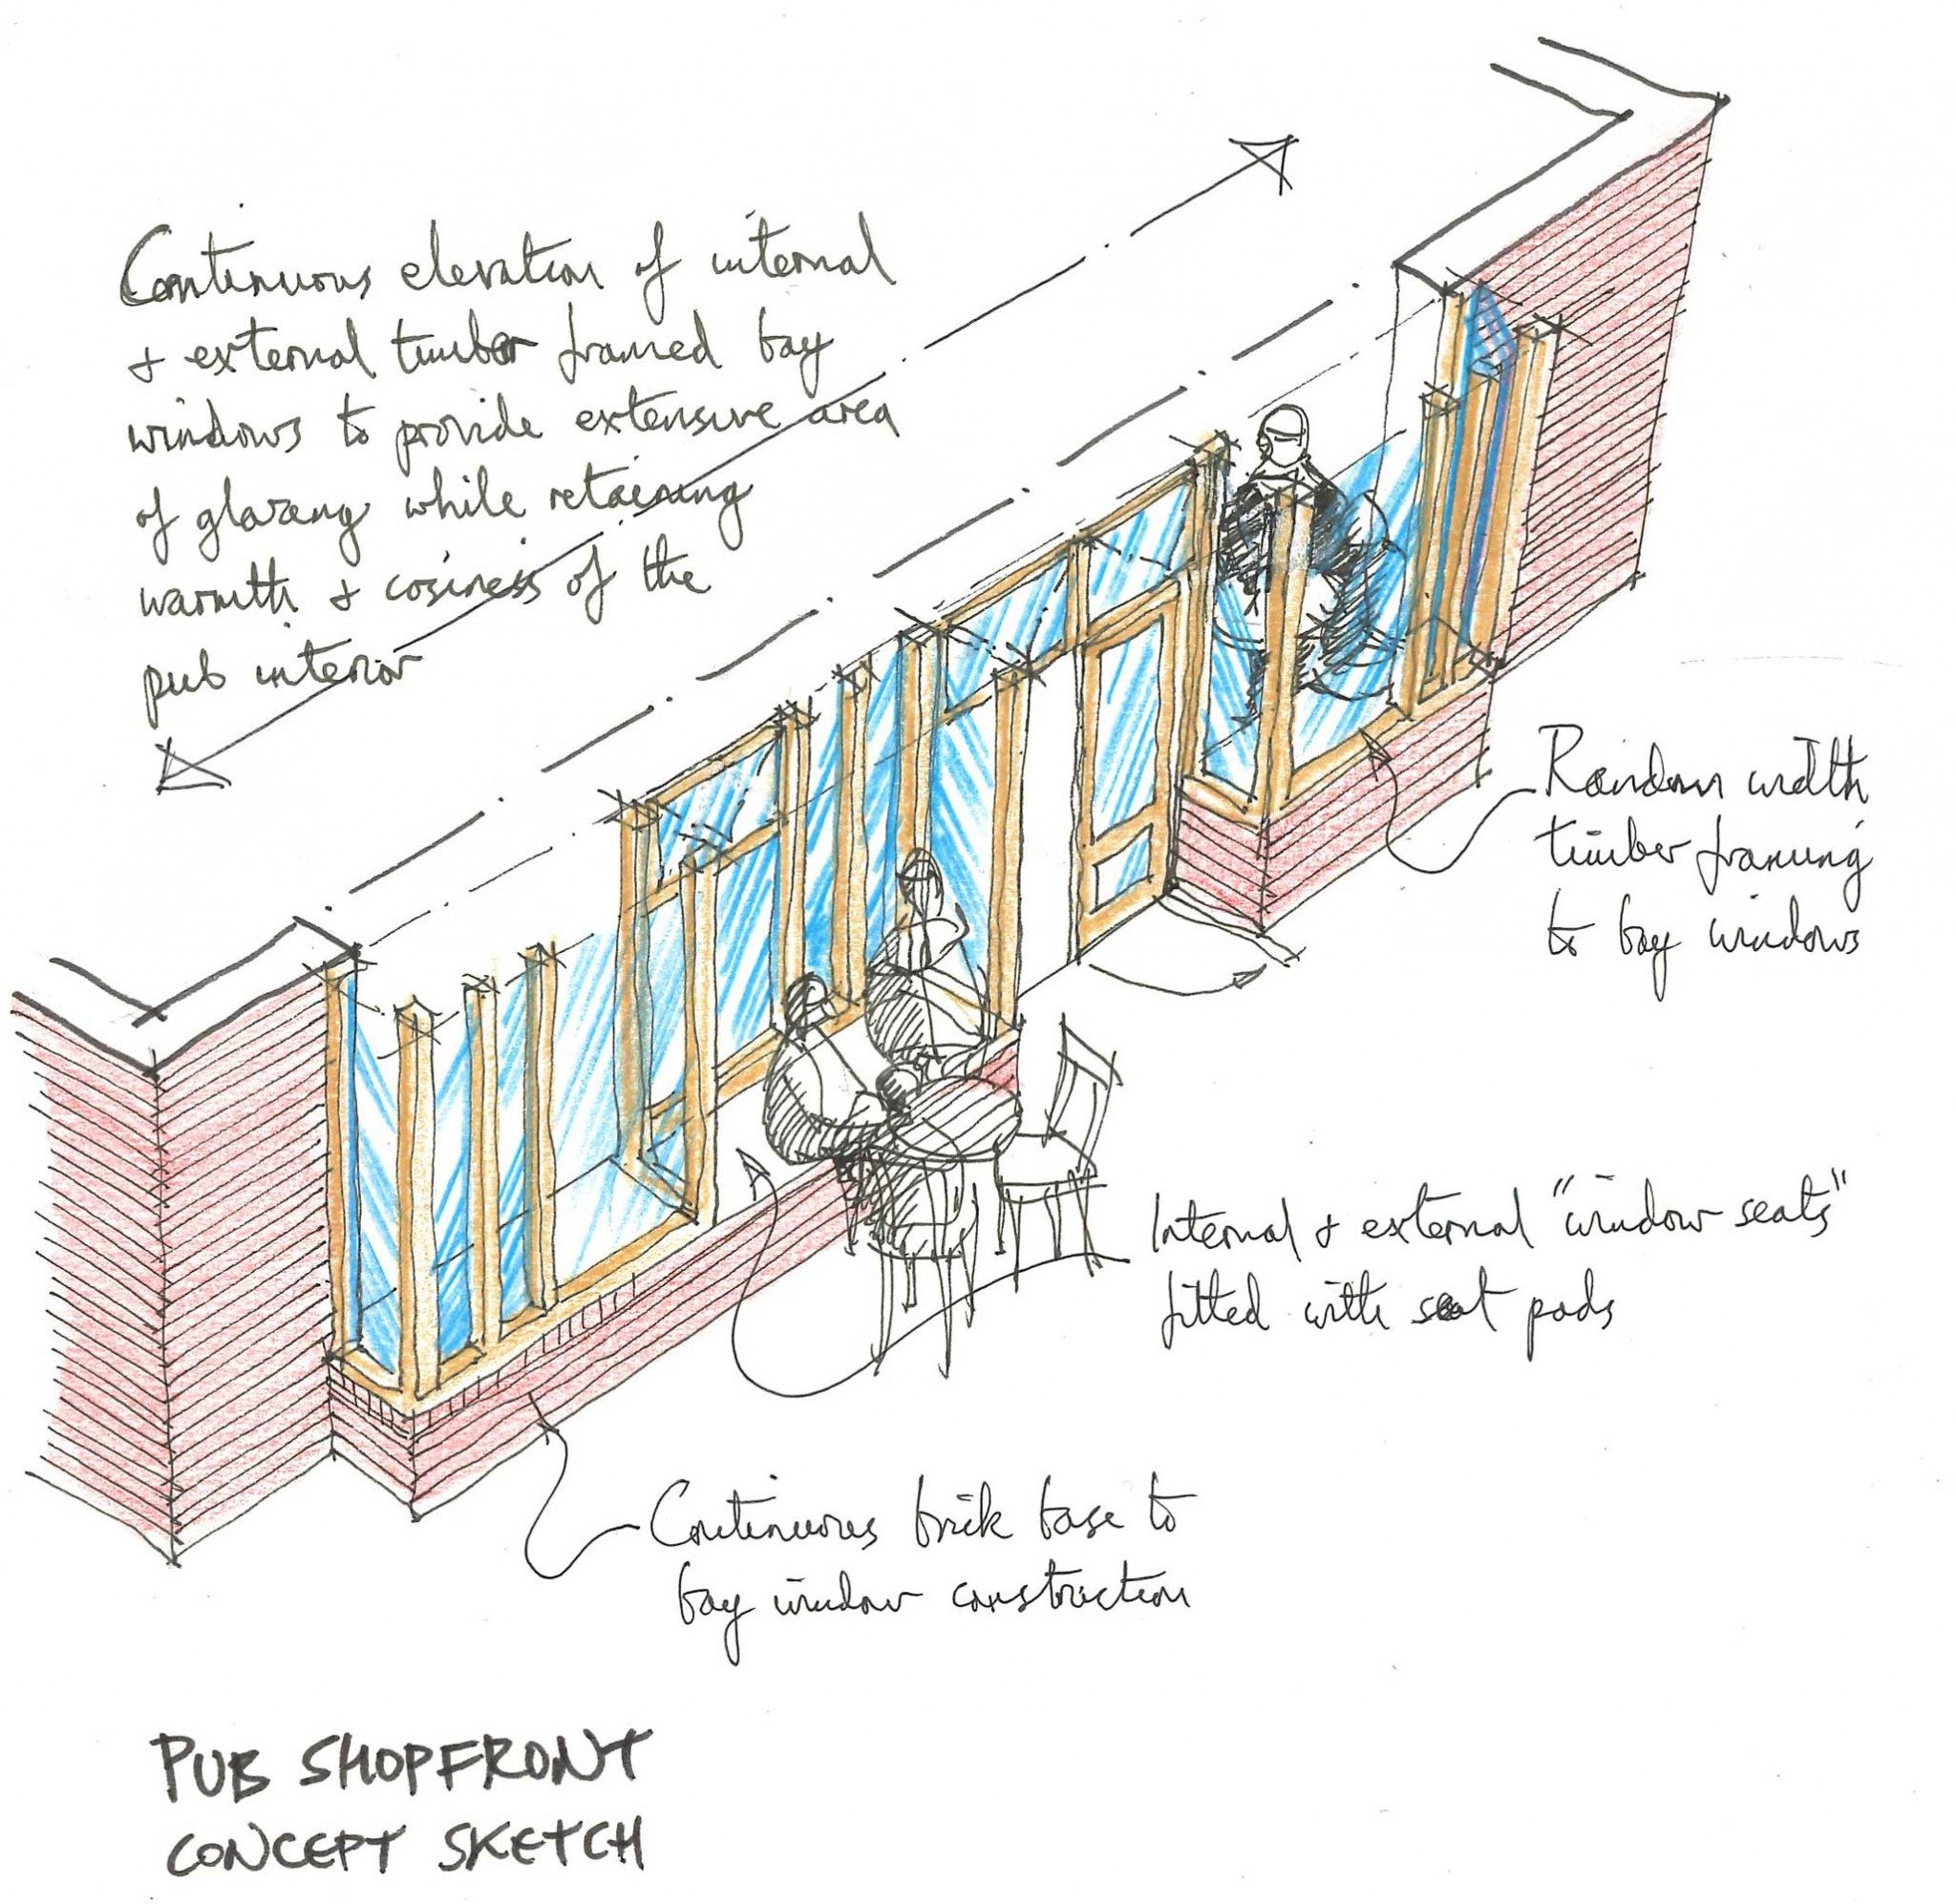 Continuous elevation of internal
& external timber framed bay
windows to provide extensive area
of glazing while retaining
warmth & cosiness of the
pub interior
Random width
timber framing
to bay windows
Internal & external "window seats"
fitted with seat pads
Continuous brick base to
bay window construction
PUB SHOPFRONT
CONCEPT SKETCH